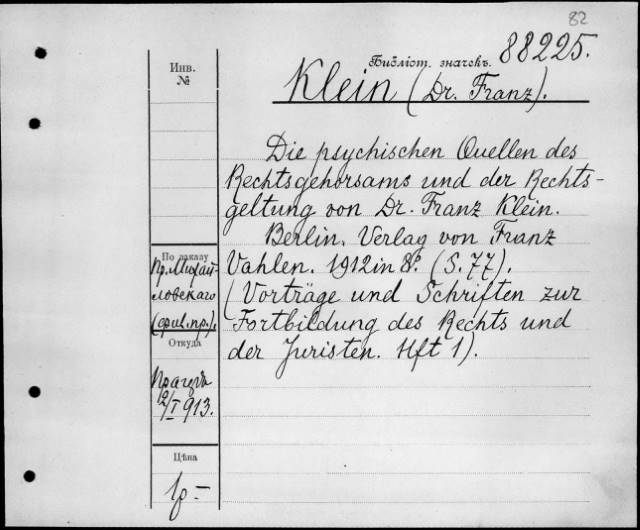 82
Инв.
№
Библіот. значекъ. 88225.
Klein (Dr. Franz).
Die psychischen Quellen des
Rechtsgehorsams und der Rechts-
geltung von Dr. Franz Klein.
Berlin. Verlag von Franz
Vahlen. 1912 in 8º. (S. 77).
(Vorträge und Schriften zur
Fortbildung des Rechts und
der Juristen. Hft 1).
По заказу
пр. Михай-
ловскаго
(фил. пр.).
Откуда
12/I 913.
Цѣна
1р –